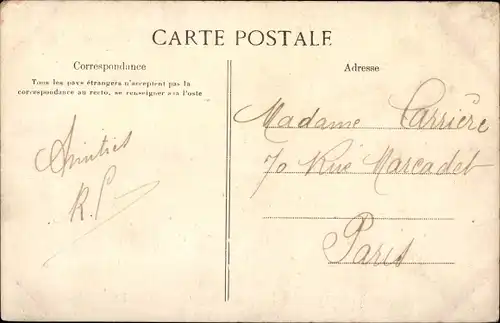 CARTE POSTALE
Correspondance
Tous les pays étrangers n'acceptent pas la
correspondance au recto, se renseigner à la Poste
Amitiés
R. P
Adresse
Madame Carrière
70 Rue Marcadet
Paris